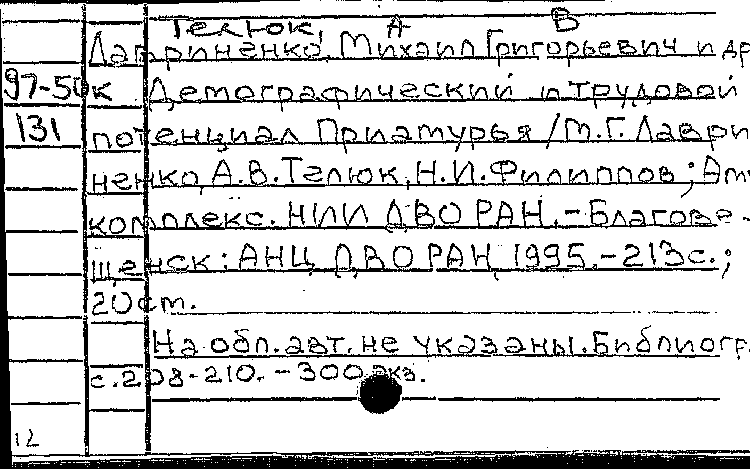 Телюк, А В
Лавриненко, Михаил Григорьевич и др
97-50к Демографический и трудовой
131 потенциал Приамурья / М.Г. Лаври
ненко, А.В. Телюк, Н.И. Филиппов; Ам
комплекс. НИИ ДВО РАН. - Благове-
щенск: АНЦ ДВО РАН, 1995. - 213 с.;
20 cm.
На обл. авт. не указаны. Библиогр.
с. 208-210. - 300 экз.
12